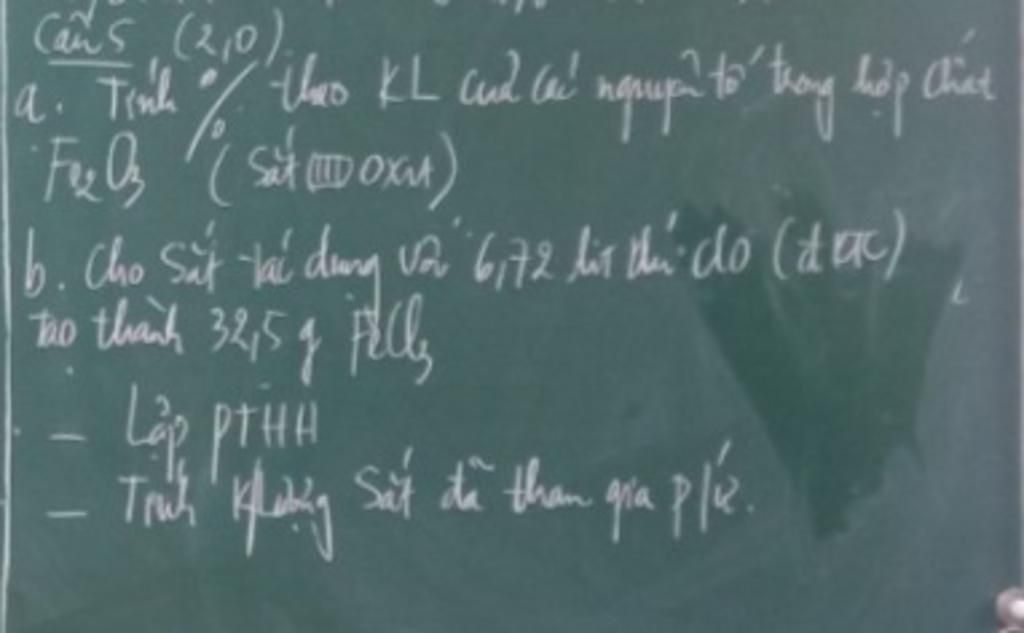 Câu 5 (2,0)
a. Tính % theo KL của các nguyên tố trong hợp chất
Fe2O3 (Sắt (III) oxit)
b. Cho Sắt tác dụng với 6,72 lít khí clo (đktc)
tạo thành 32,5 g FeCl3
- Lập PTHH
- Tính Klượng Sắt đã tham gia p/ứ.